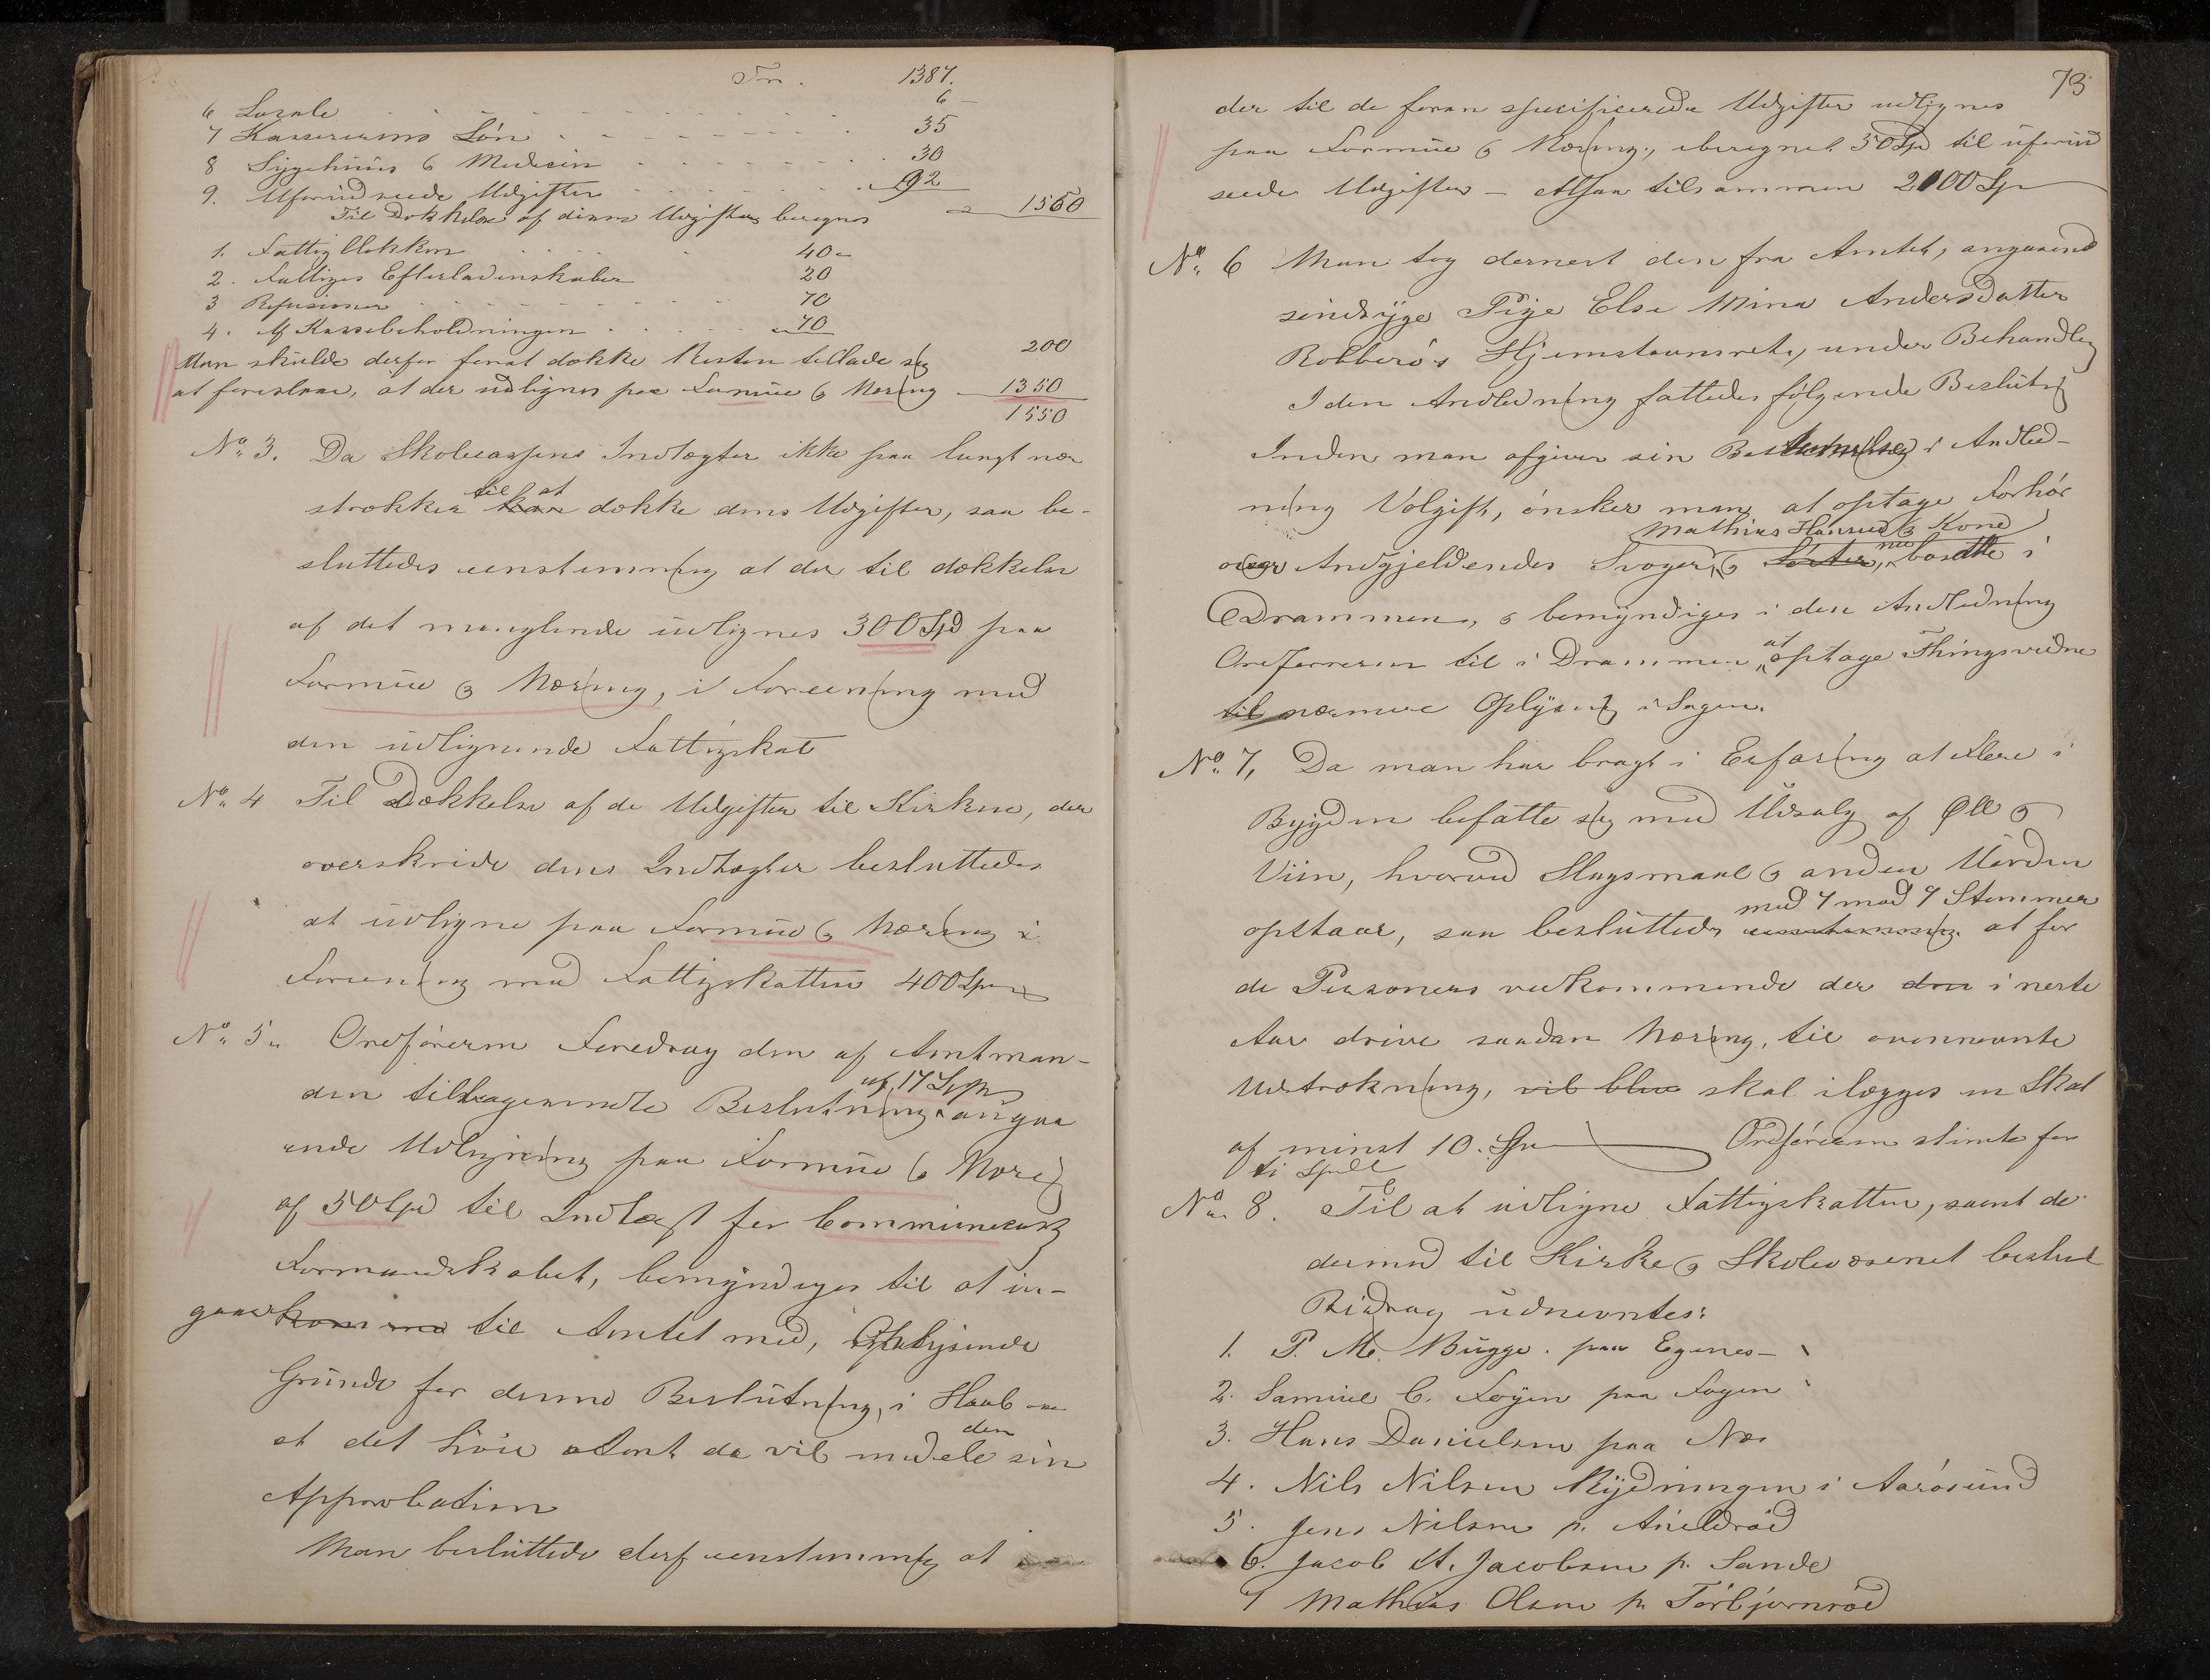 Trn. 1387.
6 Locale 6 –
7 Kassererens Løn 35
8 Sygehuus & Medicin 30
9. Uforudseede Udgifter 92
Til Dækkelse af disse Udgifter beregnes 1550
1. Fattigblokken 40
2. Fattiges Efterladenskaber 20
3 Refusioner 70
4. Af Kassebeholdningen 70
200
Man skulde derfor forat dække Resten tillade sig
at foreslaae, at der udlignes paa Formue & Næring 1350
1550
No. 3. Da Skolecassens Indtægter ikke paa langt nær
til at
strækker dække dens Udgifter, saa be-
sluttedes eenstemmig at der til dækkelse
af det manglende udlignes 300 Spd paa
Formue & Næring, i Foreening med
den udlignende Fattigskat
No. 4 Til Dækkelse af de Udgifter til Kirkene, der
overskride dens Indtægter besluttedes
at udligne paa Formue & Næring i
Foreening med Fattigskatten 400 Spd
No. 5. Ordføreren Foredrag den af Amtman-
af 17 Sept
den tilbagesendte Beslutning angaa
ende Udligning paa Formue & Næring
af 50 Spd til Indtægt for Communecassen
Formandskabet, bemyndiges til at in-
gaae til Amtet med, Oplysende
Grunde for denne Beslutning, i Haab om
den
at det høie Amt da vil meddele sin
Approbation
Man besluttede derf eenstemmig at
73
der til de foran specificerede Udgifter udlignes
paa Formue & Næring, iberegnet 50 Spd til uforud
seede Udgifter – Altsaa tilsammen 2100 Sp
No. 6 Man tog dernest den fra Amtet, angaaend
sindsyge Pige Else Mina Andersdatter
Robberø's Hjemstavnsrets, under Behandling
I den Anledning fattedes følgende Beslutning
Inden man afgiver sin Bestemmelse i Anled-
ning Volgift, ønsker man at optage Forhør
Mathias Hansen & Kone
over Angjeldendes Svoger, & Søster, nu bosatte i
Drammen, & bemyndiges i den Anledning
at
Ordføreren til i Drammen optage Thingsvidne
til nærmere Oplysning i Sagen.
No. 7, Da man har bragt i Erfaring at Flere i
Bygden befatte sig med Udsalg af Øll &
Viin, hvorved Slagsmaal & anden Uorden
med 7 mod 7 Stemmer
opstaar, saa besluttedes eenstemmig at for
de Personers vedkommende der den i neste
Aar drive saadan Næring, til ovennævnte
Udstrækning, vil blive skal ilægges en Skat
af minst 10. Sp Ordføreren stimte for
ti Spdl
No. 8. Til at udligne Fattigskatten, samt de
dermed til Kirke & Skolevæsenet beslut
Bidrag udnevntes:
1. P. M. Bugge. paa Egenes –
2. Samuel C. Foyen paa Foyen
3. Hans Danielsen paa Næs
4. Nils Nilsen Rydningen i Aarøsund
5. Jens Nilsen p. Aueldrød
6. Jacob A. Jacobsen p. Sande
7 Mathias Olsen p. Torbjørnrød